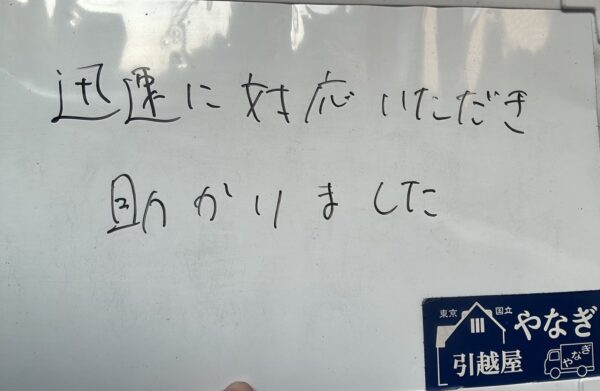 迅速に対応いただき
助かりました
東京 国立
やなぎ
引越屋
やなぎ